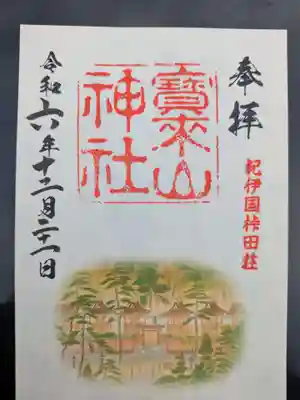 奉拝
紀伊国桛田荘
寶来山
神社
令和六年十二月二十一日